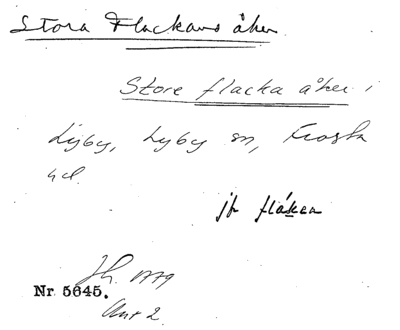 Stora Flackans åker
Store flacka åker i
Lyby, Lyby sn, Frosta
hd.
jfr flåken
Jh. 1779
Nr 5645.
Akt 2